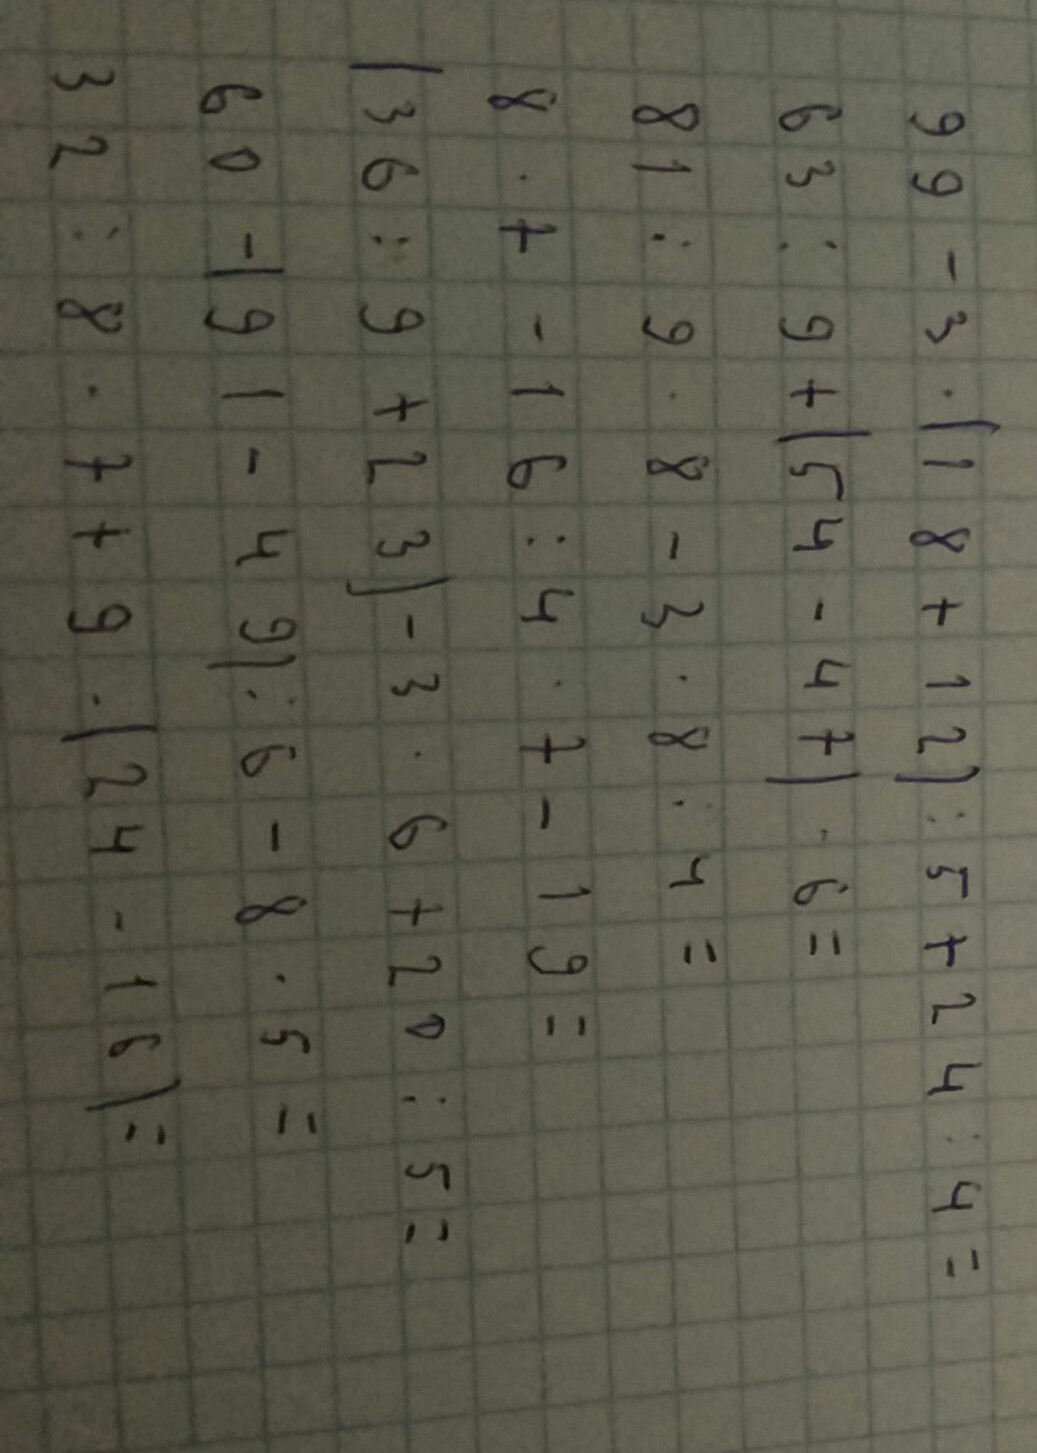 99-3·(18+12):5+24:4=
63:9+(54-47)·6=
81:9·8-3·8:4=
8·7-16:4·7-19=
(36:9+23)-3·6+20:5=
60-(91-49):6-8·5=
32:8·7+9·(24-16)=